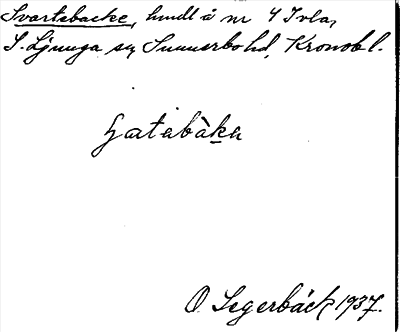 Svartabacke, hmdl å nr 4 Ivla,
S. Ljunga sn, Sunnerbo hd, Kronob l.
O. Segerbäck 1937.